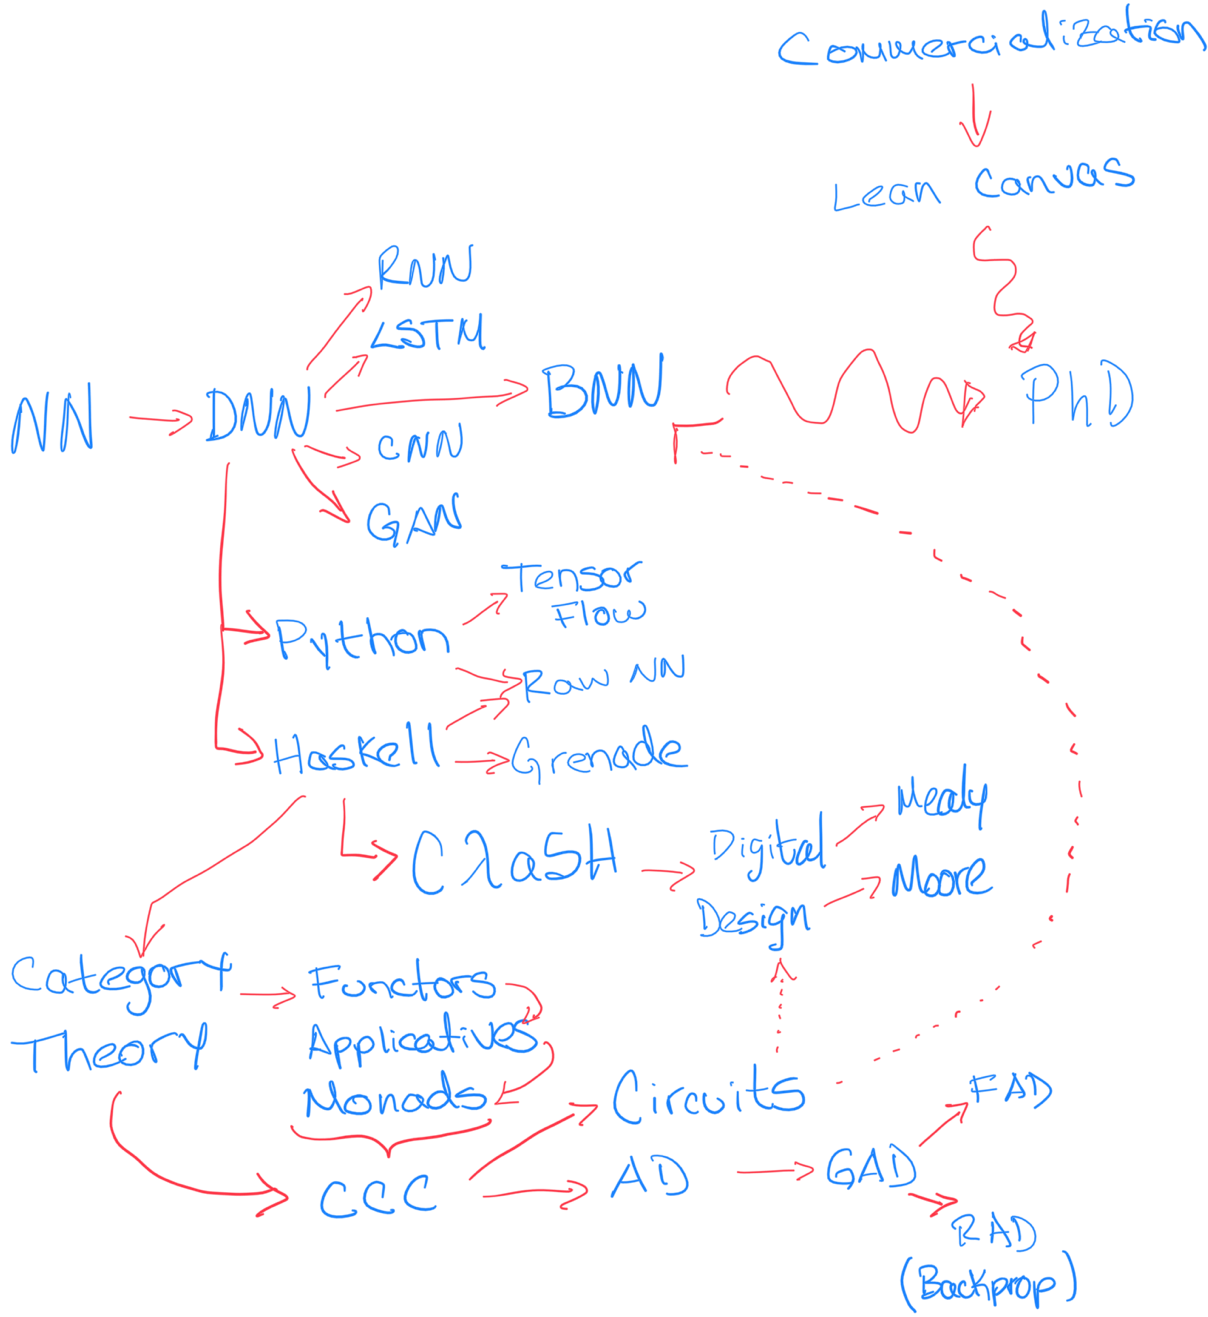 Commercialization
Lean Canvas
RNN
LSTM
NN
DNN
BNN
PhD
CNN
GAN
Tensor
Flow
Python
Raw NN
Haskell
Grenade
CλaSH
Digital
Design
Mealy
Moore
Category
Theory
Functors
Applicatives
Monads
CCC
Circuits
AD
GAD
FAD
RAD
(Backprop)